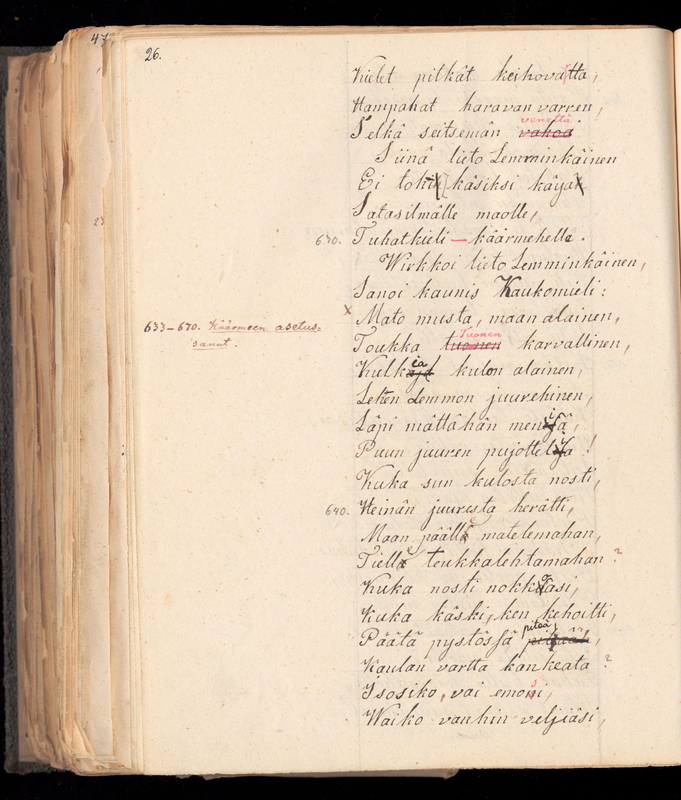 47
26.
23
Kielet pitkät keihovatta,
Hampahat haravan varren,
venettä
Selkä seitsemän vakoa
Siinä lieto Lemminkäinen
Ei toki käsiksi käyä
Satasilmälle maolle,
630. Tuhatkieli – käärmehelle.
Wirkkoi lieto Lemminkäinen,
Sanoi kaunis Kaukomieli:
x Mato musta, maan alainen,
633–670. Käärmeen asetus-
sanat.
Tuonen
Toukka tuonen karvallinen,
Kulkia kulon alainen,
Lehen Lemmon juurehinen,
Läpi mättähän meniä,
Puun juuren pujottelia!
Kuka sun kulosta nosti,
640. Heinän juuresta herätti,
Maan päälle matelemahan,
Tielle teukkalehtamahan?
Kuka nosti nokkoasi,
Kuka käski, ken kehoitti,
pitää
Päätä pystössä
Kaulan vartta kankeata?
Isosiko, vai emosi,
Waiko vanhin veljiäsi,